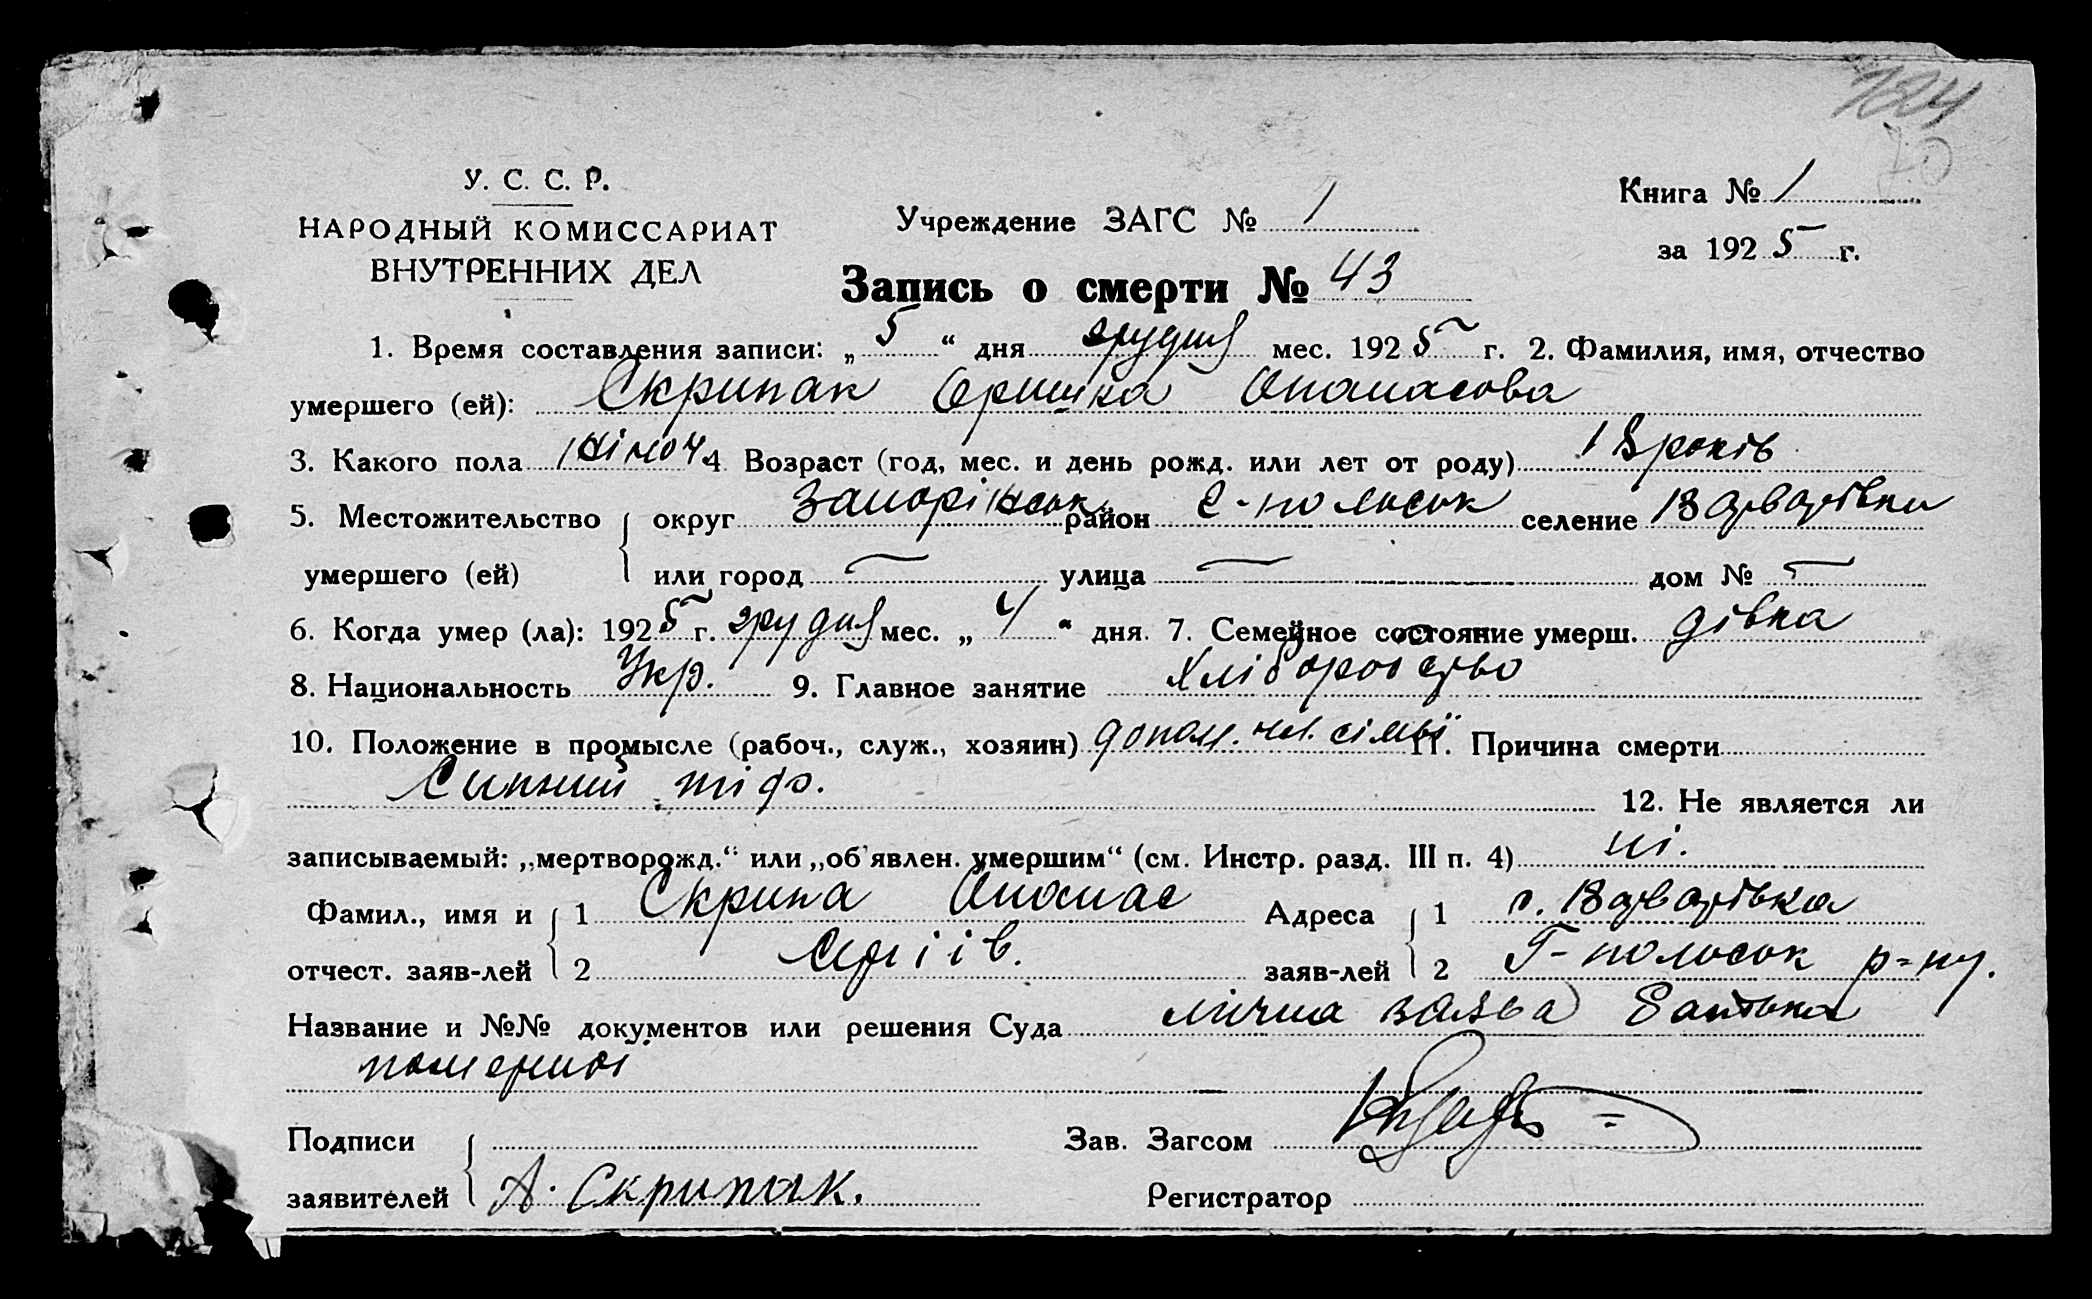 184
70
У. С. С. Р.
НАРОДНЫЙ КОМИССАРИАТ
ВНУТРЕННИХ ДЕЛ
Учреждение ЗАГС № 1
Книга № 1
за 1925 г.
Запись о смерти № 43
1. Время составления записи: „5“ дня грудня мес. 1925 г. 2. Фамилия, имя, отчество
умершего (ей): Скрипак Оришка Опанасова
3. Какого пола жіноч 4 Возраст (год, мес. и день рожд. или лет от роду) 18 років
5. Местожительство округ Запоріжськ район Г-польськ селение Варварівка
умершего (ей) или город — улица — дом № —
6. Когда умер (ла): 1925 г. грудня мес. „4“ дня. 7. Семейное состояние умерш. дівка
8. Национальность Укр. 9. Главное занятие Хліборобство
10. Положение в промысле (рабоч., служ., хозяин) допом. чл. сімьї 11. Причина смерти
Сипний тіф.
12. Не является ли
записываемый: „мертворожд.“ или „об'явлен. умершим“ (см. Инстр. разд. III п. 4) ні.
Фамил., имя и 1 Скрипа Опанас Адреса 1 с. Варварівка
отчест. заяв-лей 2 Сергіїв. заяв-лей 2 Г-польськ р-ну.
Название и №№ документов или решения Суда лична заява батька
помершої
Подписи
Зав. Загсом
заявителей А. Скрипак.
Регистратор